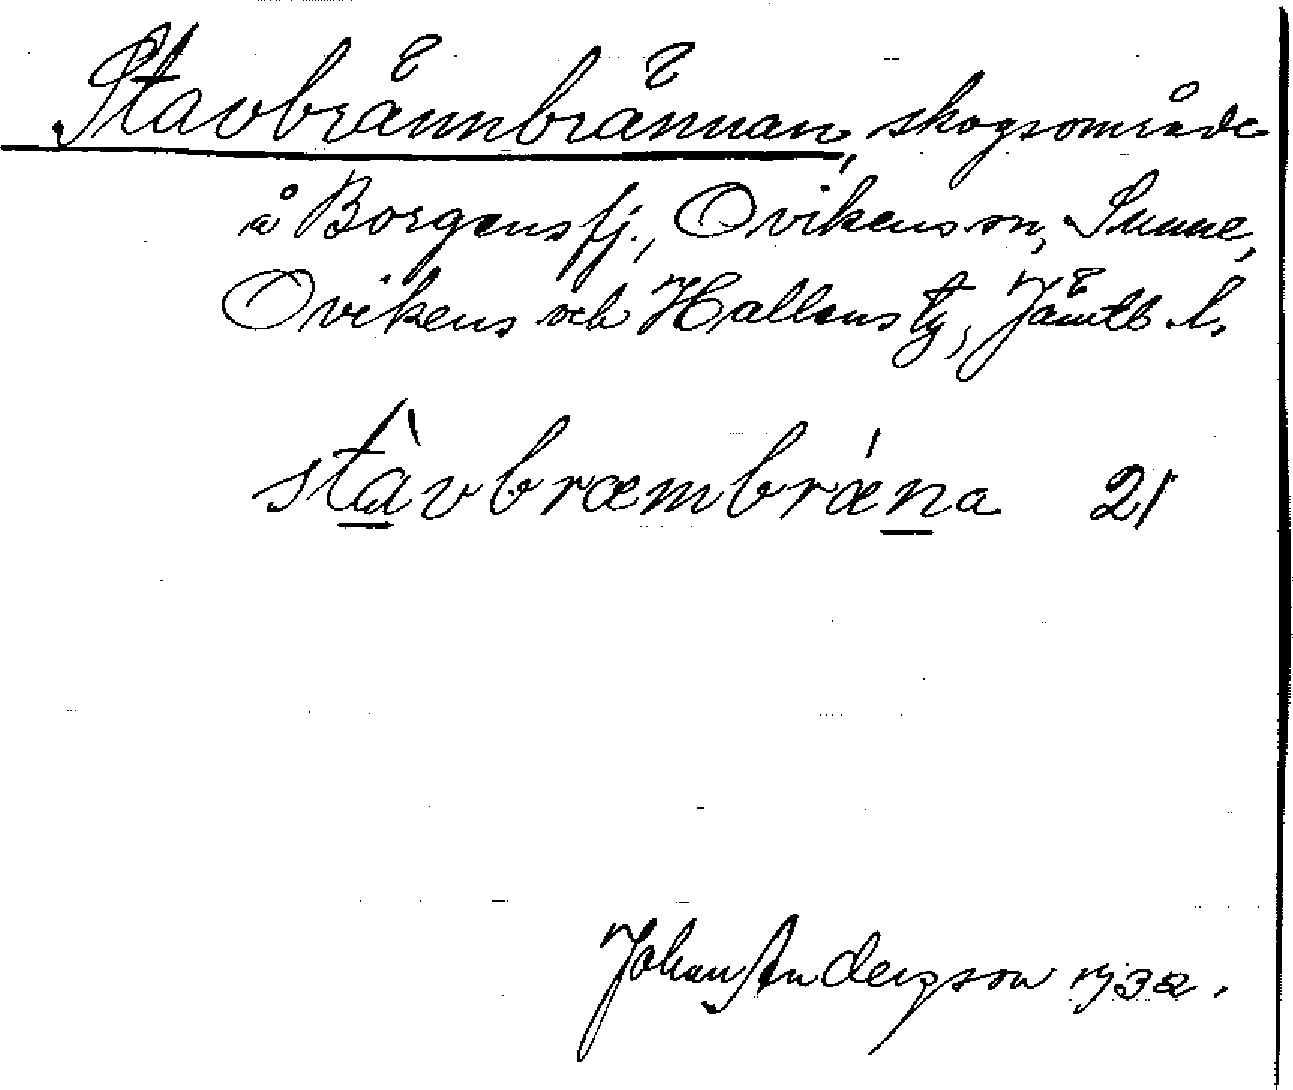 Stavbrännbrännan, skogsområde
å Borgens fj., Ovikens sn, Sunne,
Ovikens och Hallens tg, Jämtl. l.
stàvbræmbrǽna 21
Johan Anderson 1932.